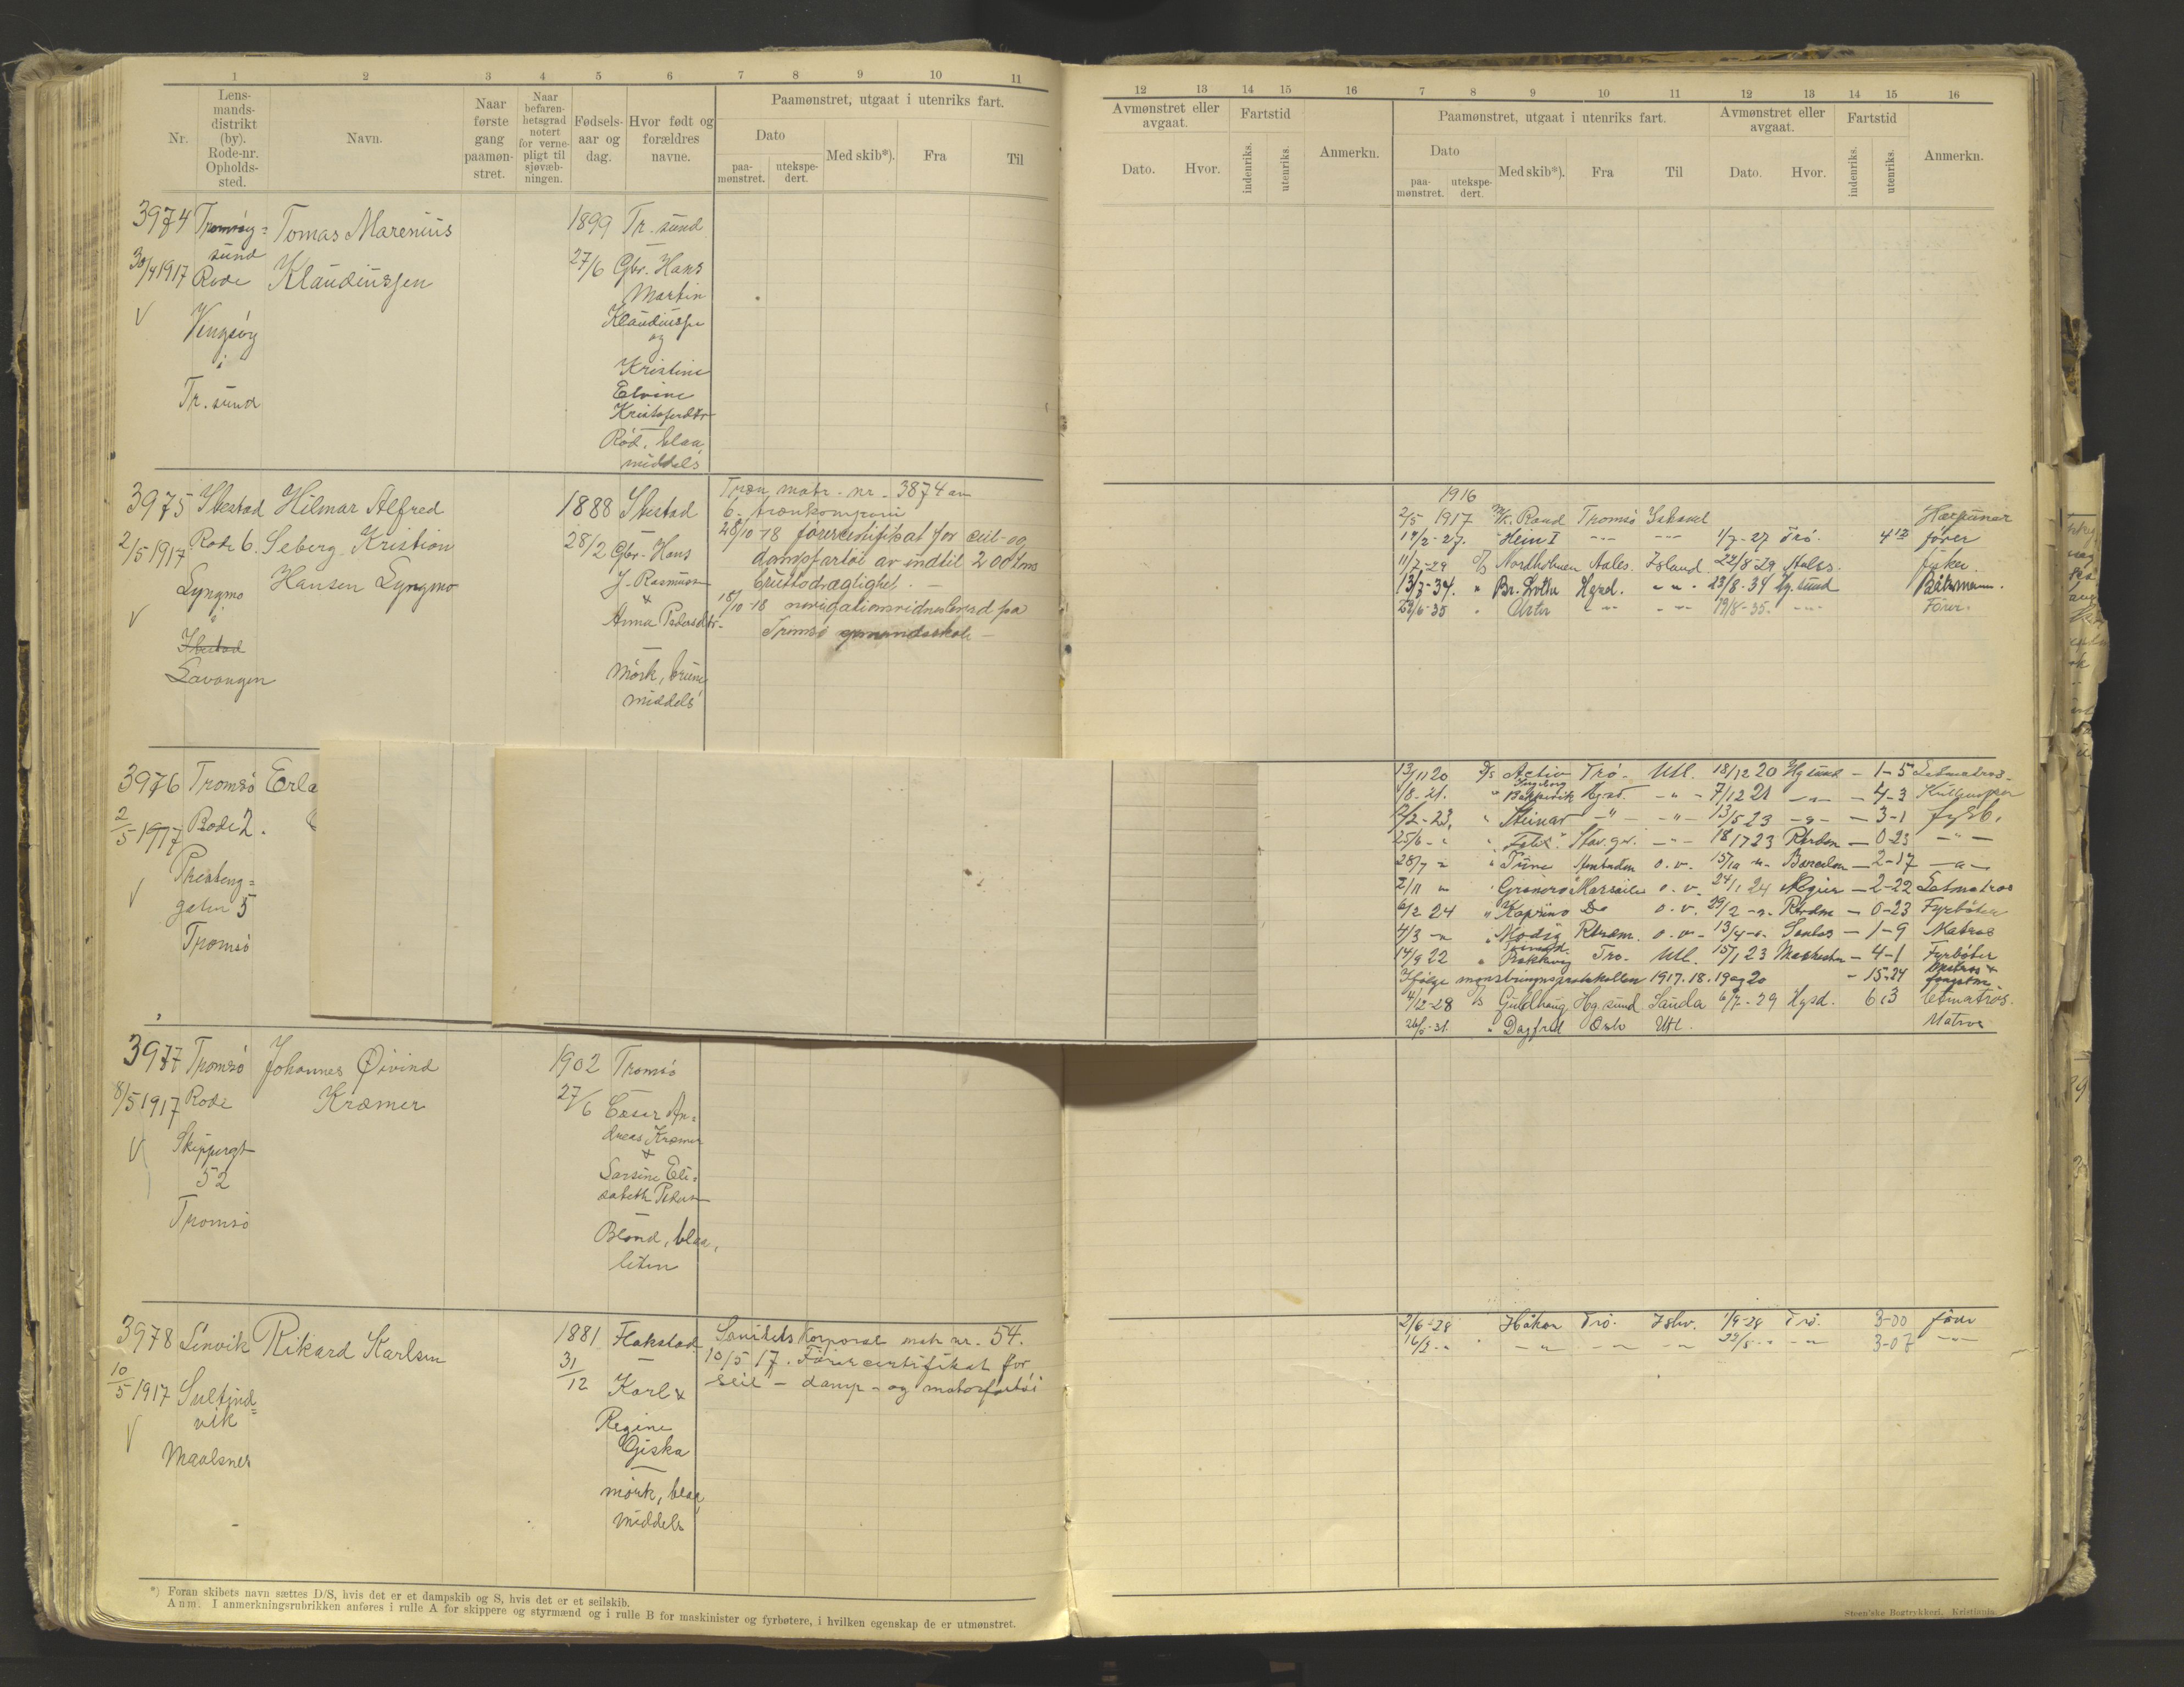 1 2 3 4 5 6 7 8 9 10 11
Nr.
Lens-
mands-
distrikt
(by).
Rode-nr.
Opholds-
sted.
Navn.
Naar
første
gang
paamøn-
stret.
Naar
befaren-
hetsgrad
notert
for verne-
pligt til
sjøvæb-
ningen.
Fødsels-
aar og
dag.
Hvor født og
forældres
navne.
Paamønstret, utgaat i utenriks fart.
Dato
paa-
mønstret.
utekspe-
dert.
Med skib*).
Fra
Til
3974 Tromsøy=
sund
30/4 1917 Rode
Vengsøy
i
Tr. sund
Tomas Marenius
Klaudiussen
1899
27/6
Tr. sund
Gbr. Hans
Martin
Klaudiussen
og
Kristine
Elvine
Kristoferdtr
Rød, blaa,
middels
3975 Ibestad
2/5 1917 Rode 6.
Lyngmo
i
Ibestad
Lavangen
Hilmar Alfred
Seberg Kristian
Hansen Lyngmo
1888
28/2
Ibestad
Gbr. Hans
J. Rasmussen
&
Anna Pedersdtr.
Mørk, brune,
middels
Træn matr. nr. 3874 av
6. trænkompani
28/10-18 førercertifikat for seil- og
dampfartøi av indtil 200 tons
bruttodrægtighet. —
18/10-18 navigationsvidnesbyrd fra
Tromsø sømandsskole —
3976 Tromsø
2/5 1917 Rode 2.
gaten 5
Tromsø
Erla
3977 Tromsø
8/5 1917 Rode
Skippergt
52
Tromsø
Johannes Øivind
Kræmer
1902
27/6
Tromsø
Cæsar An=
dreas Kræmer
&
Larsine Eli=
sabeth Petersen
Blond, blaa,
liten
3978 Lenvik
10/5 1917 Sultind=
vik
Maalsnes
Rikard Karlsen
1881
31/12
Flakstad
Karl &
Regine
Giska
mørk, blaa,
middels
Sanitets korporal matr nr. 54.
10/5 17. Førercertifikat for
seil - damp - og motorfartøi
*) Foran skibets navn sættes D/S, hvis det er et dampskib og S, hvis det er et seilskib.
Anm. I anmerkningsrubrikken anføres i rulle A for skippere og styrmænd og i rulle B for maskinister og fyrbøtere, i hvilken egenskap de er utmønstret.
12 13 14 15 16 7 8 9 10 11 12 13 14 15 16
Avmønstret eller
avgaat.
Dato.
Hvor.
Fartstid
indenriks.
utenriks.
Anmerkn.
Paamønstret, utgaat i utenriks fart.
Dato
paa-
mønstret.
utekspe-
dert.
Med skib*).
Fra
Til
Avmønstret eller
avgaat.
Dato.
Hvor.
Fartstid
indenriks.
utenriks.
Anmerkn.
1916
2/5 1917 M/K. Tromsø Ishavet Harpuner
17/2-27. Heim I --- --- 1/7-27 Trø. 4 12 fører
11/7-29 Nordholmen Aales. Island 22/8-29 Aales. fisker.
13/7-34. " Hgsd. -"- 23/8-34 Hg.sund Båtsmann.
29/6-35 " --- --- 19/8-35. --- Fører.
13/11 20 D/S Activ Trø- Utl. 18/12 20 Hgsund - 1-5 Letmatros-
1/8-21. " Ingeborg Bakkevik Hgsd. -"- 7/12 21 -"- - 4-3
2/2-23, " Steinar -"- -"- 13/5 23 -"- - 3-1 fyrb.
25/6-" " Stav.gr. -"- 18/7 23 Rtrdam - 0-23 -"-
28/7 " " Tune Amsterdam o.v. 15/10 -"- Barcelon - 2-17 -"-
2/11 " " Granero Marseille o.v. 24/1 24 - 2-22 Letmatros
6/2 24 " Do o.v. 29/2 -"- Rtrdm - 0-23 Fyrbøter
4/3 -"- " Modig Rtrdm. o.v. 13/4 -"- - 1-9 Matros
14/9 22 " Bakkvig Trø- Utl. 15/1 23 - 4-1 Fyrbøter
Ifølge mønstringsprotokollen 1917. 18. 19 og 20 - 15-24 Matros &
4/12-28 D/S Guldhaug Hg.sund Sauda 6/7-29 Hgsd. 6 i 3 letmatros.
26/5-31. " Dagfred Oslo Utl. Matros
2/6-28 " Håkon Trø. Ishv. 1/9-28 Trø. 3-00 fører
16/5-" " -"- -"- -"- 22/8-" -"- 3-07 -"-
Steen'ske Bogtrykkeri, Kristiania.